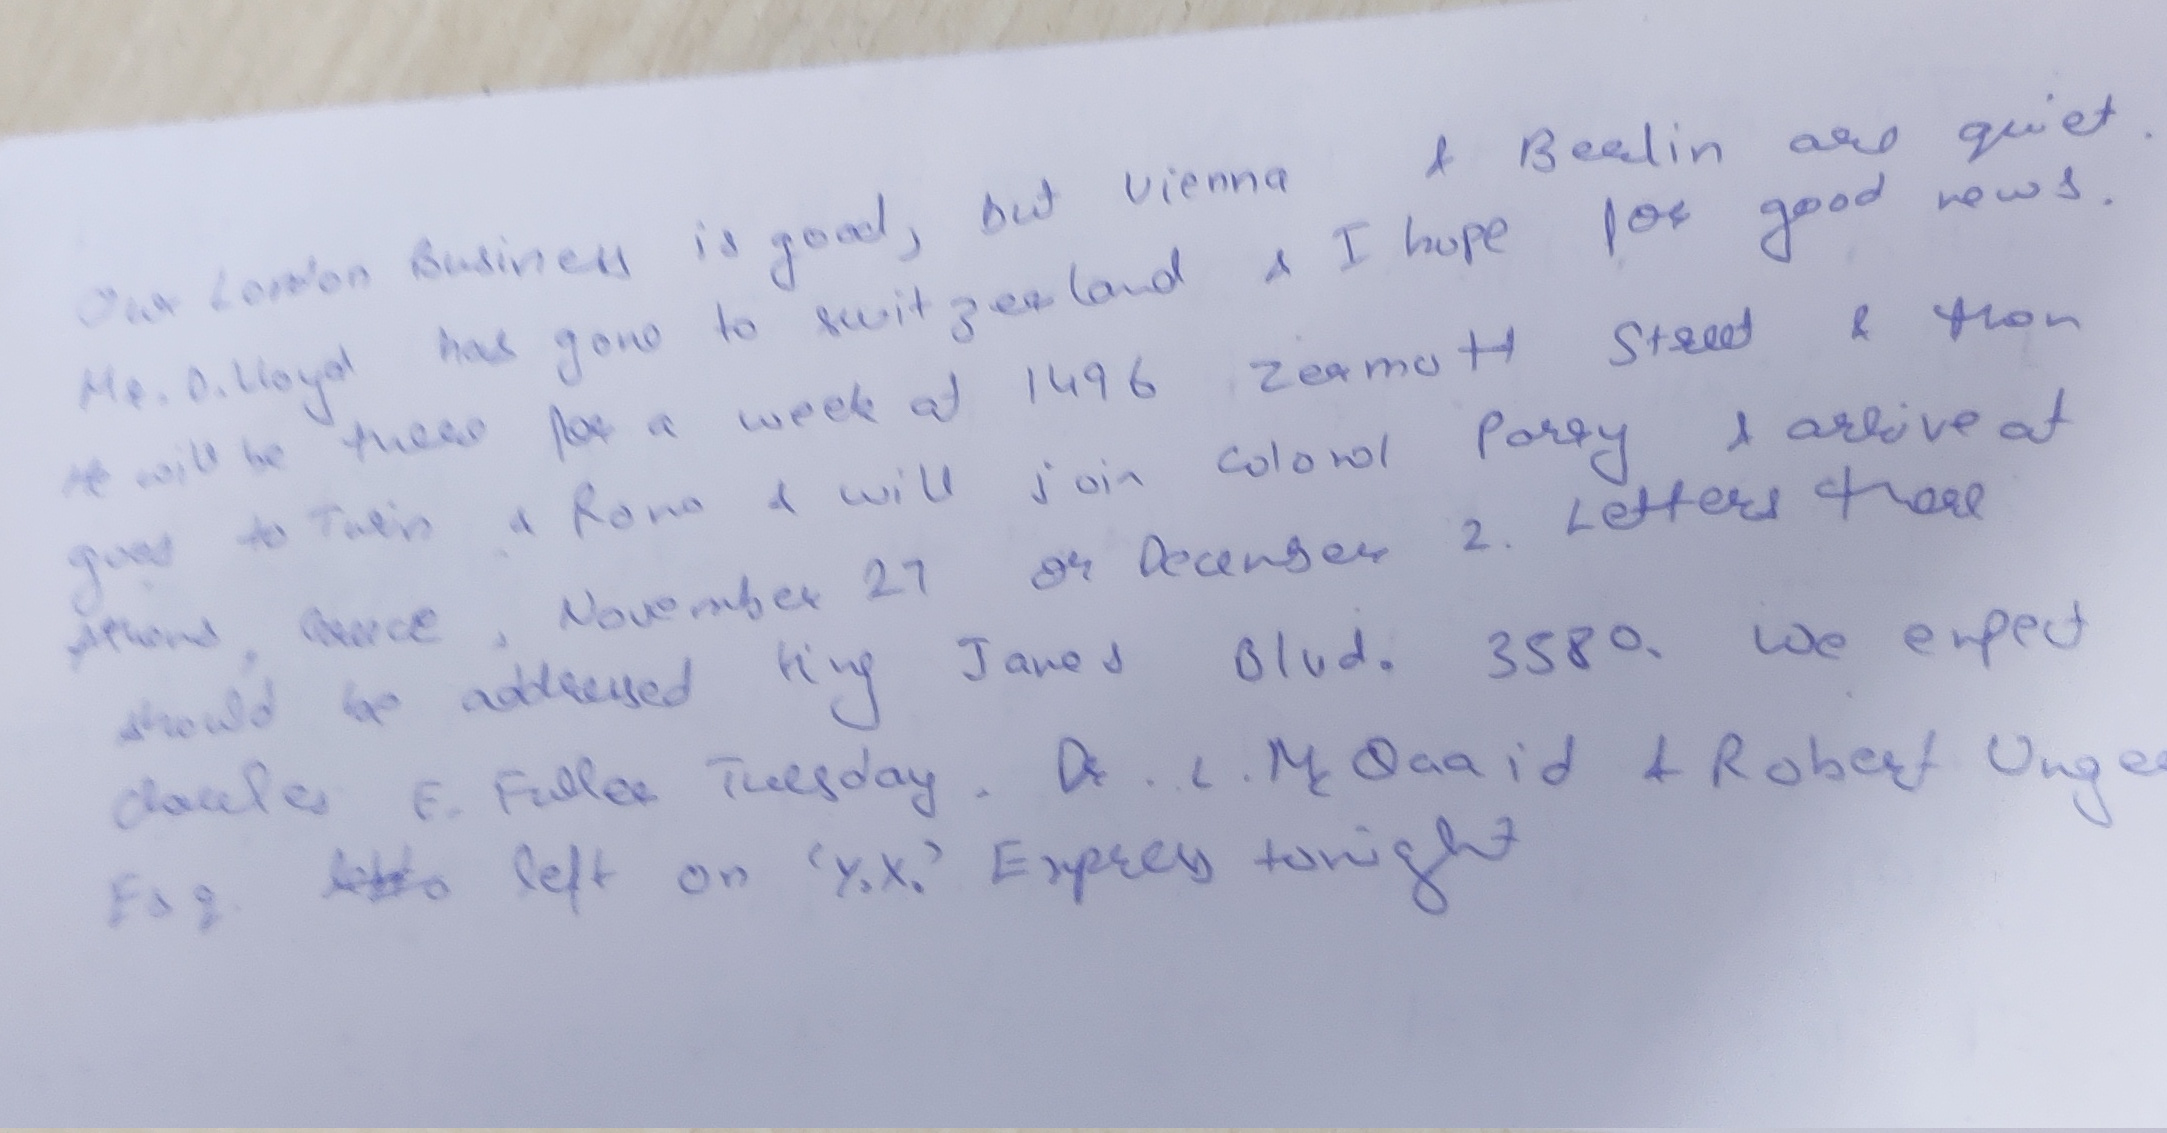 Our London Business is good, but Vienna & Berlin are quiet.
Mr. D. Lloyd has gone to Switzerland & I hope for good news.
He will be there for a week at 1496 Zermott Street & then
goes to Turin & Rome & will join Colonel Parry & arrive at
Athens, Greece, November 27 or December 2. Letters there
should be addressed King James Blvd. 3580. We expect
Charles E. Fuller Tuesday. Dr. L. Mc Quaid & Robert Unger
Esq. left on 'Y.X.' Express tonight